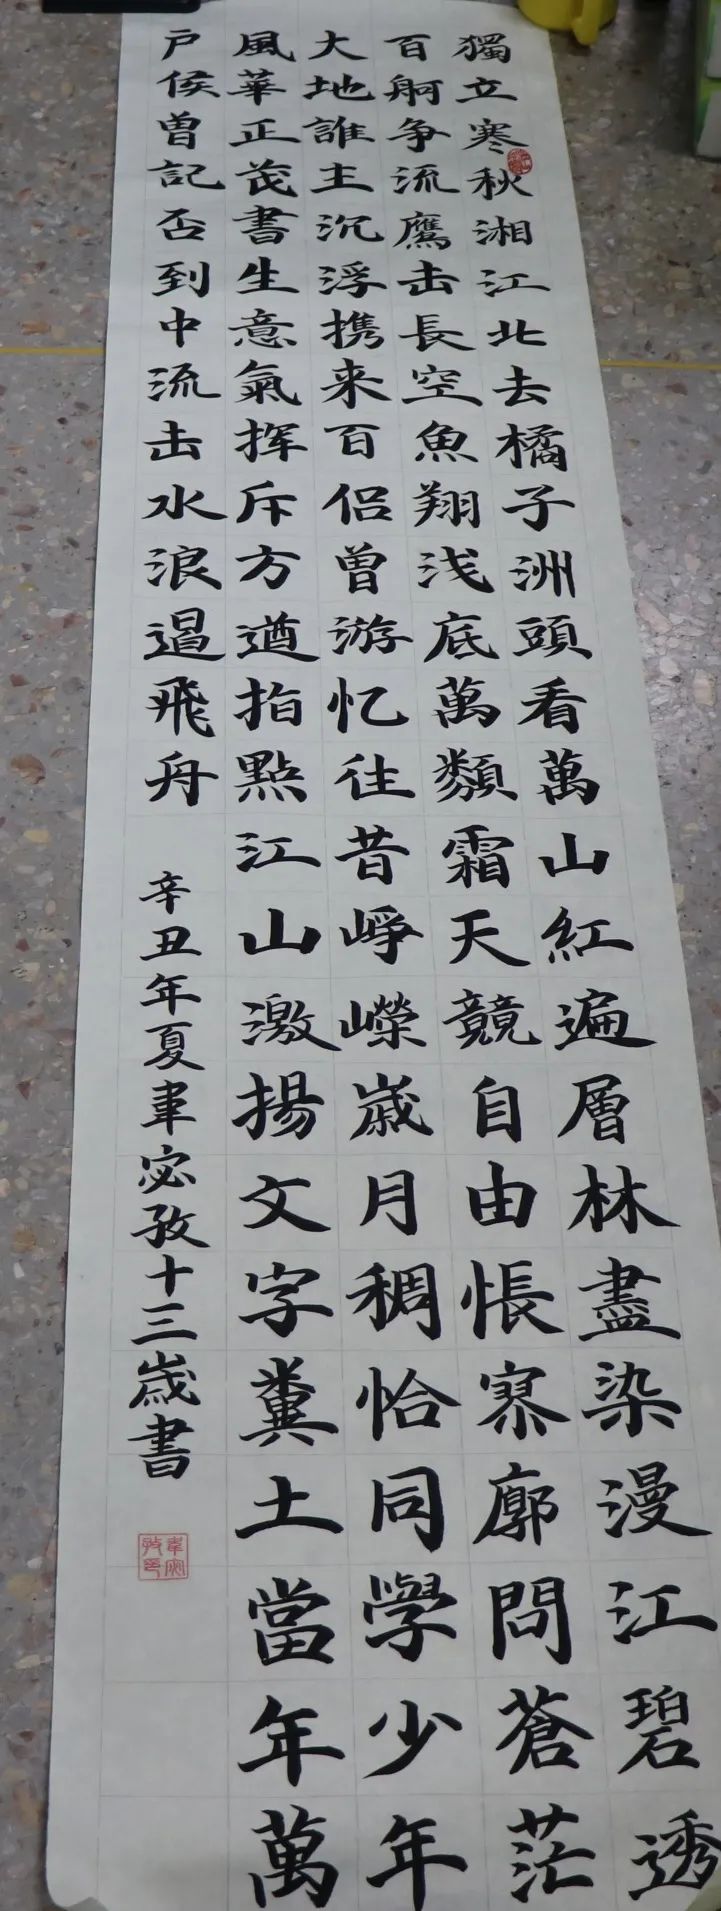 獨立寒秋湘江北去橘子洲頭看萬山紅遍層林盡染漫江碧透
百舸争流鷹击長空魚翔浅底萬類霜天競自由悵寥廓問蒼茫
大地誰主沉浮携来百侣曾游忆往昔峥嶸歲月稠恰同學少年
風華正茂書生意氣挥斥方遒指點江山激揚文字糞土當年萬
户侯曾記否到中流击水浪遏飛舟
辛丑年夏宓孜十三歲書